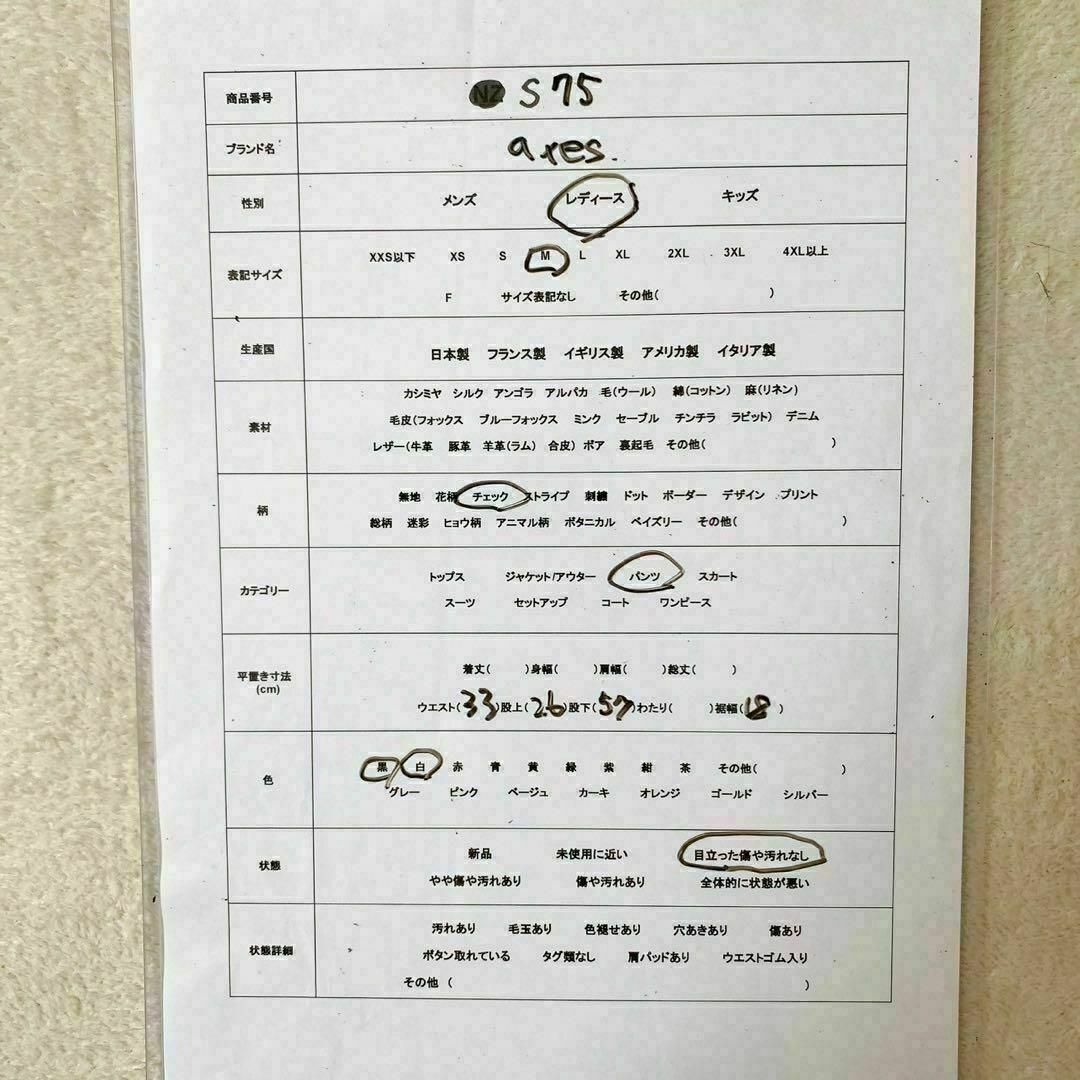 商品番号 NZ S75
ブランド名 ares.
性別 メンズ レディース キッズ
表記サイズ XXS以下 XS S M L XL 2XL 3XL 4XL以上
F サイズ表記なし その他( )
生産国 日本製 フランス製 イギリス製 アメリカ製 イタリア製
素材 カシミヤ シルク アンゴラ アルパカ 毛(ウール) 綿(コットン) 麻(リネン)
毛皮(フォックス ブルーフォックス ミンク セーブル チンチラ ラビット) デニム
レザー(牛革 豚革 羊革(ラム) 合皮) ボア 裏起毛 その他( )
柄 無地 花柄 チェック ストライプ 刺繍 ドット ボーダー デザイン プリント
総柄 迷彩 ヒョウ柄 アニマル柄 ボタニカル ペイズリー その他( )
カテゴリー トップス ジャケット/アウター パンツ スカート
スーツ セットアップ コート ワンピース
平置き寸法
(cm)
着丈( )身幅( )肩幅( )総丈( )
ウエスト(33)股上(26)股下(57)わたり( )裾幅(18)
色 黒 白 赤 青 黄 緑 紫 紺 茶 その他( )
グレー ピンク ベージュ カーキ オレンジ ゴールド シルバー
状態 新品 未使用に近い 目立った傷や汚れなし
やや傷や汚れあり 傷や汚れあり 全体的に状態が悪い
状態詳細 汚れあり 毛玉あり 色褪せあり 穴あきあり 傷あり
ボタン取れている タグ類なし 肩パッドあり ウエストゴム入り
その他 ( )